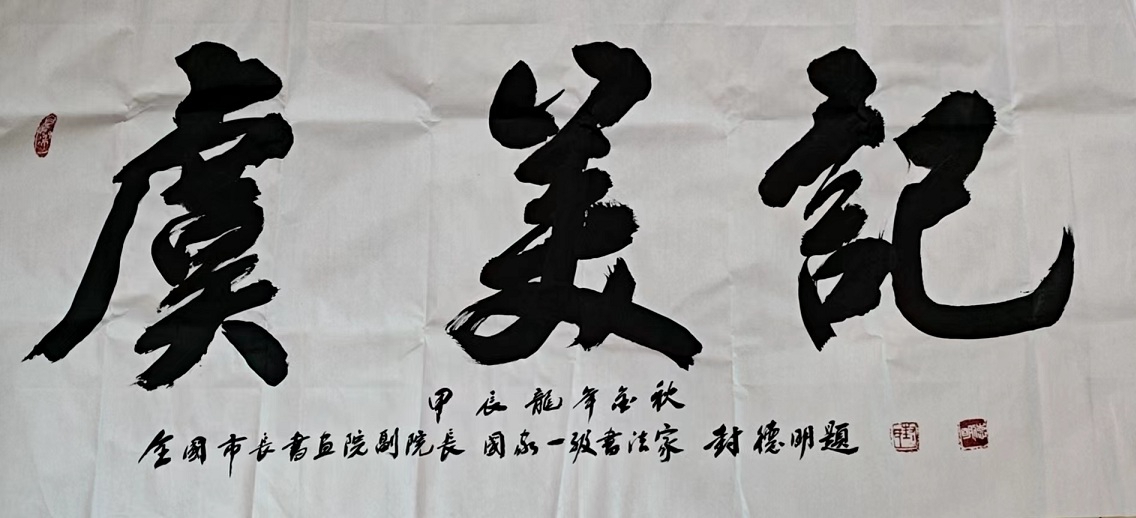 虞美記
甲辰龍年金秋
全國市長書畫院副院長 國家一级書法家 封德明題